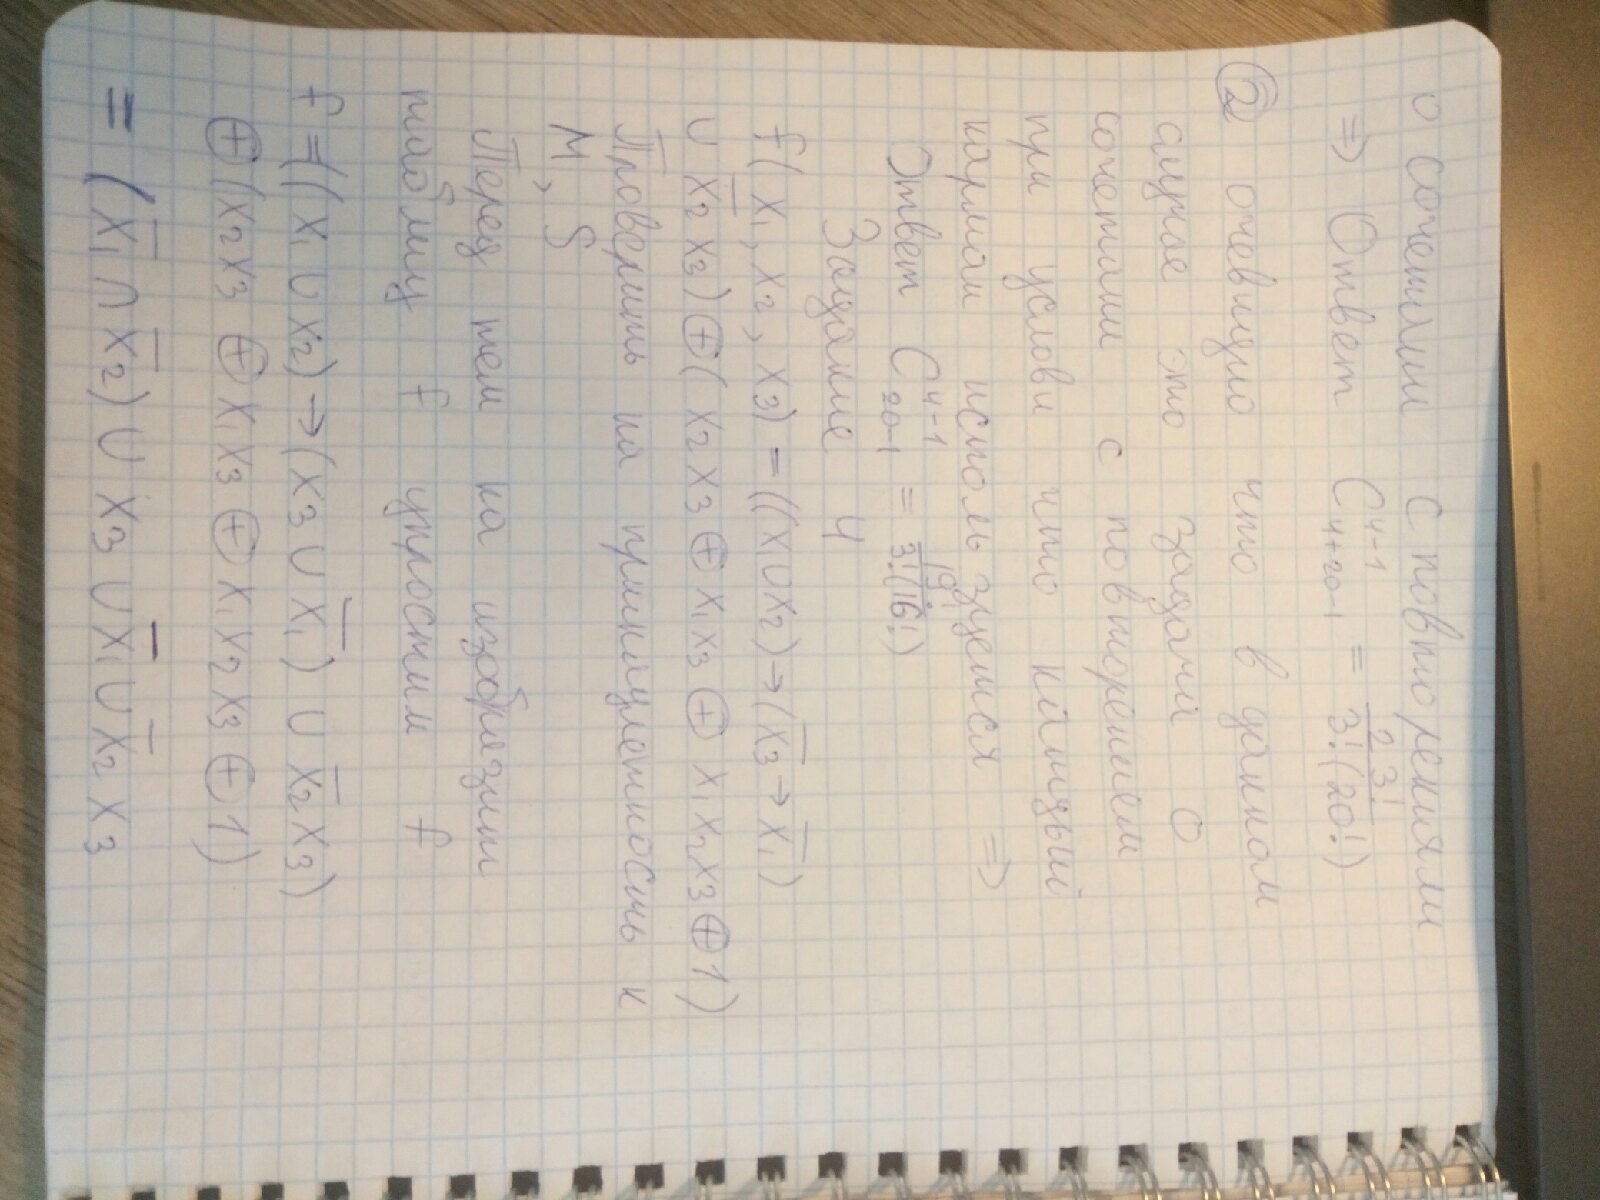 о сочетании с повторениям
⇒ Ответ C_{4+20-1}^{4-1} = \frac{23!}{3!(20!)}
② очевидно что в данном
случае это задачай о
сочетании с повторением
при услови что каждый
карман использзуется ⇒
Ответ C_{20-1}^{4-1} = \frac{19!}{3!(16!)}
Задание 4
f(x₁, x₂, x₃) = ((x∪x₂)→(x̅₃→x̅₁)
∪ x̅₂x₃)⊕(x₂x₃ ⊕ x₁x₃ ⊕ x₁x₂x₃⊕1)
Проверить на принадлежность к
M, S
Перед тем на изобразим
таблицу f упростим f
f=((x₁∪x₂)→(x₃∪x̅₁) ∪ x̅₂x₃)
⊕(x₂x₃ ⊕ x₁x₃ ⊕ x₁x₂x₃ ⊕1)
= (x̅₁∩x̅₂)∪x₃∪x̅₁∪x̅₂x₃